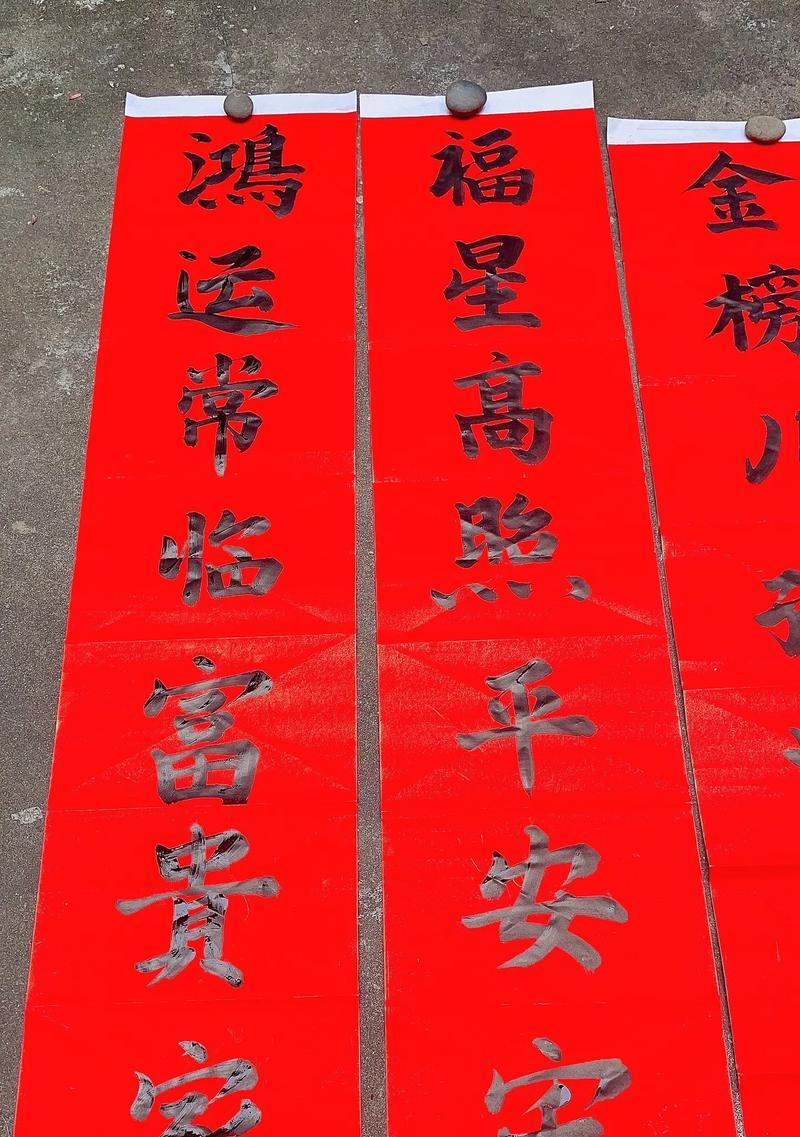 金榜
福星高照平安宅
鴻运常临富貴家